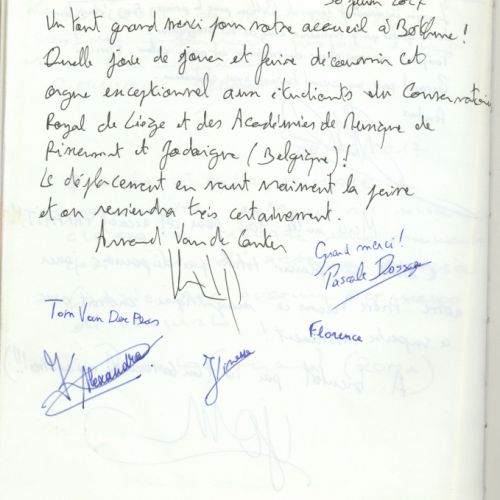 30 juin 2017
Un tout grand merci pour votre accueil à Béthune !
Quelle joie de jouer et faire découvrir cet
orgue exceptionnel aux étudiants du Conservatoire
Royal de Liège et des Académies de Musique de
et Jodoigne (Belgique) !
Le déplacement en vaut vraiment la peine
et on reviendra très certainement.
Arnaud Van de Cauter
Grand merci !
Pascale
Tom Van Der
Florence
Alexandra